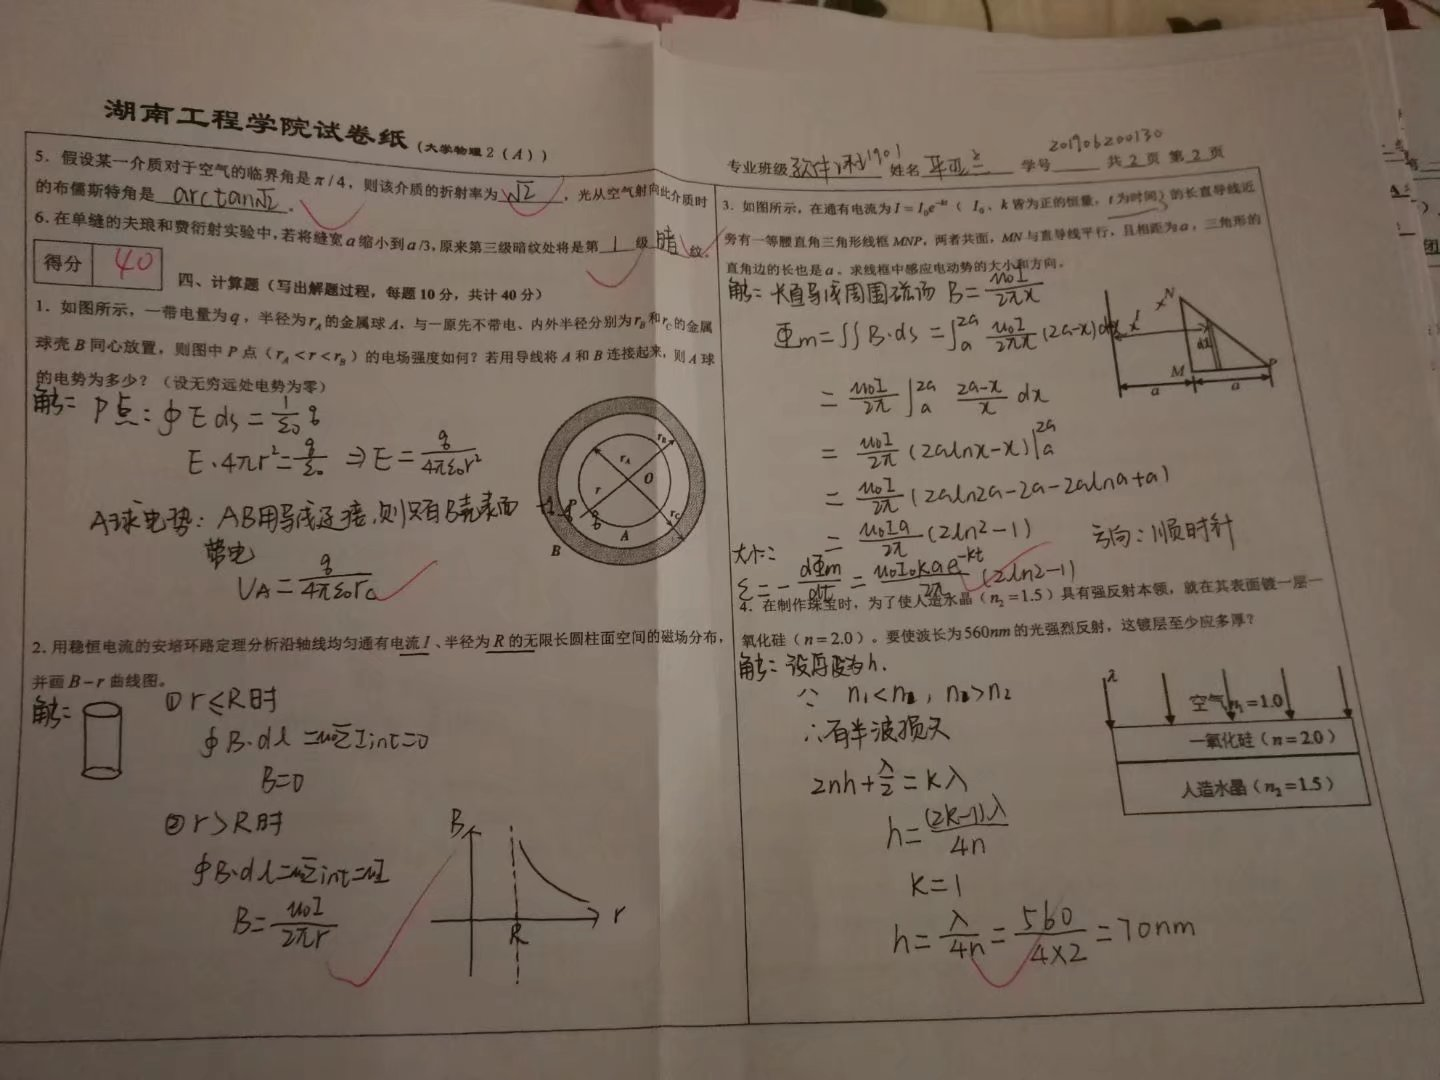 湖南工程学院试卷纸（大学物理2（A））
5．假设某一介质对于空气的临界角是π/4，则该介质的折射率为 √2 ，光从空气射向此介质时
的布儒斯特角是 arctan√2 。
6．在单缝的夫琅和费衍射实验中，若将缝宽a缩小到a/3，原来第三级暗纹处将是第 1 级 暗 纹。
得分 40
四、计算题（写出解题过程，每题10分，共计40分）
1．如图所示，一带电量为q，半径为rA的金属球A，与一原先不带电、内外半径分别为rB和rC的金属
球壳B同心放置，则图中P点（rA＜r＜rB）的电场强度如何？若用导线将A和B连接起来，则A球
的电势为多少？（设无穷远处电势为零）
解：P点：∮Eds=1/ε0 q
E·4πr²=q/ε0 ⇒E=q/4πε0r²
A球电势：AB用导线连接，则只有B壳表面
带电
UA=q/4πε0rC
rA
rB
rC
r
O
P
q
A
B
2．用稳恒电流的安培环路定理分析沿轴线均匀通有电流I、半径为R的无限长圆柱面空间的磁场分布，
并画B－r曲线图。
解：
①r≤R时
∮B·dl=μ0ΣIint=0
B=0
②r>R时
∮B·dl=μ0Σint=μ0I
B=μ0I/2πr
B
R
r
专业班级 软件1901 姓名 学号 201906200130 共2页 第2页
3．如图所示，在通有电流为I=I0e^-kt（I0、k皆为正的恒量，t为时间）的长直导线近
旁有一等腰直角三角形线框MNP，两者共面，MN与直导线平行，且相距为a，三角形的
直角边的长也是a。求线框中感应电动势的大小和方向。
解：长直导线周围磁场 B=μ0I/2πx
Φm=∬B·ds=∫a^2a μ0I/2πx (2a-x)dx
=μ0I/2π ∫a^2a (2a-x)/x dx
=μ0I/2π (2alnx-x)|a^2a
=μ0I/2π (2aln2a-2a-2alna+a)
=μ0Ia/2π (2ln2-1)
方向：顺时针
大小：
ε=-dΦm/dt=μ0I0kae^-kt/2π (2ln2-1)
N
M
P
a
a
4．在制作珠宝时，为了使人造水晶（n2=1.5）具有强反射本领，就在其表面镀一层一
氧化硅（n=2.0）。要使波长为560nm的光强烈反射，这镀层至少应多厚？
解：设厚度为h.
∵ n1<n，n>n2
∴有半波损失
2nh+λ/2=kλ
h=(2k-1)λ/4n
k=1
h=λ/4n=560/4×2=70nm
λ
空气n1=1.0
一氧化硅（n=2.0）
人造水晶（n2=1.5）